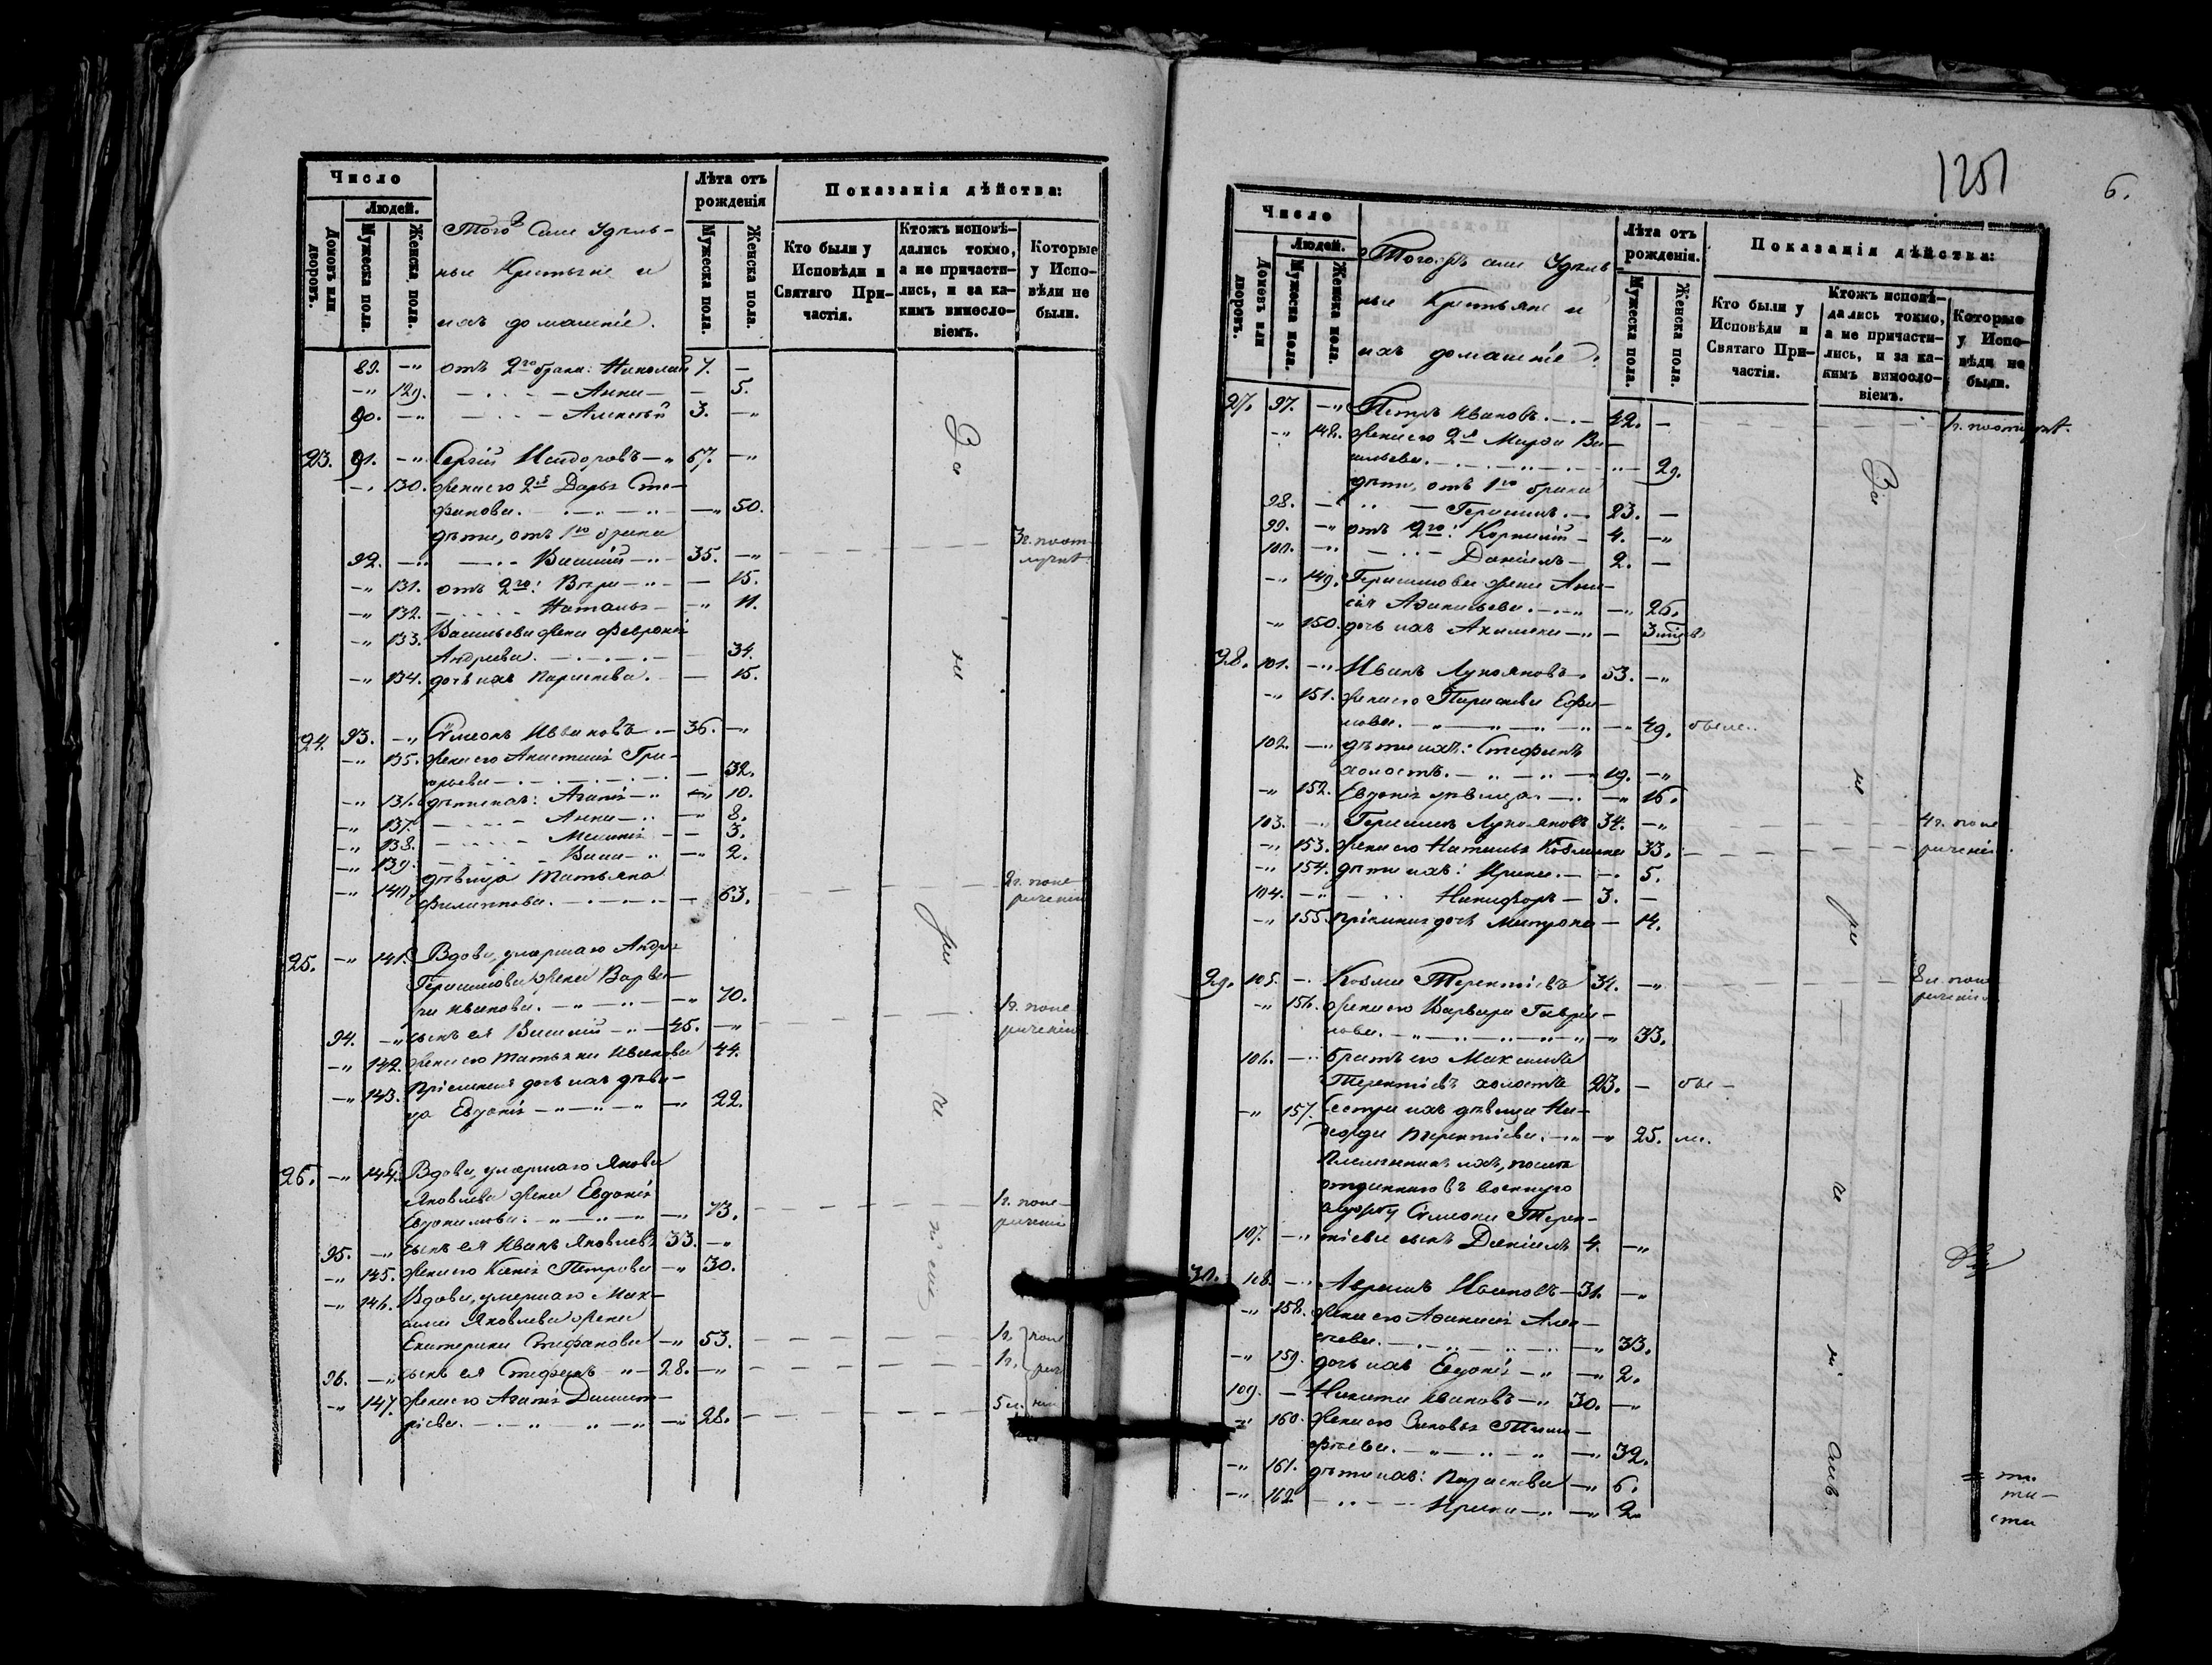 Число
Людей.
Домовъ или дворовъ.
Мужеска пола.
Женска пола.
Того села Удѣль-
ные Крестьяне и
ихъ домашніе.
Лѣта отъ рожденія
Мужеска пола.
Женска пола.
Показанія дѣйства:
Кто были у Исповѣди и Святаго Причастія.
Ктожъ исповѣ-
дались токмо,
а не причасти-
лись, и за ка-
кимъ винносло-
віемъ.
Которые
у Испо-
вѣди не
были.
89. -„ отъ 2го брака: Николай 7. -
-„ 129. - Анна - 5.
90. -„ - Алексѣй 3. -„
23. 91. -„ Сергій Исидоровъ -„ 67. -„
-„ 130. жена его 2я Дарья Сте-
фанова. -„ 50.
дѣти, отъ 1го брака
92. -„ Василій -„ 35. -„ 3г. по от-
лучкѣ
-„ 131. отъ 2го: Вѣра -„ - 15.
-„ 132. - Наталья - -„ 11.
-„ 133. Васильева жена Февронія
Андреева. - 34.
-„ 134. дочь ихъ Параскева. - 15.
24. 93. -„ Сѷмеонъ Ивановъ. - 36. -„
-„ 135. жена его Анастасія Гри-
горьева - 32.
-„ 136. дѣти ихъ: Агапія -„ -„ 10.
-„ 137. - Анна -„ -„ 8.
-„ 138. - Меланія - - 3.
-„ 139. - Васса -„ -„ 2.
-„ 140. дѣвица Татьяна
Филиппова. - 63. 2г. по не-
раченію
25. -„ 141. Вдова, умершаго Андрея
Герасимова жена Варва-
ра Иванова. -„ 70. 1г. по не
раченію
94. -„ сынъ ея Василій -„ 45. -„
-„ 142. жена его Татьяна Иванова 44.
-„ 143. Пріемная дочь ихъ дѣви-
ца Евдокія -„ 22.
26. -„ 144. Вдова, умершаго Якова
Яковлева жена Евдокія
Евдокимова. -„ 73. 1г. по не-
раченію
95. -„ сынъ ея Иванъ Яковлевъ 33. -„
-„ 145. жена его Ксенія Петрова -„ 30.
-„ 146. Вдова, умершаго Мак-
сима Яковлева жена
Екатерина Стефанова -„ 53. 1г. по не
96. -„ сынъ ея Стефанъ -„ 28. -„ 1г. раче
-„ 147. жена его Агапія Димит-
ріева. -„ 28. 5л. нію
За не ра че ніемъ
1251
6.
Число
Людей.
Домовъ или дворовъ.
Мужеска пола.
Женска пола.
Того жъ села Удѣль
ные Крестьяне и
ихъ домашніе:
Лѣта отъ рожденія.
Мужеска пола.
Женска пола.
Показанія дѣйства:
Кто были у
Исповѣди и
Святаго При-
частія.
Ктожъ исповѣ-
дались токмо,
а не причасти-
лись, и за ка-
кимъ винносло-
віемъ.
Которые
у Испо-
вѣди не
были.
27. 97. -„ Петръ Ивановъ. - 42. - 1г. по отлучкѣ.
-„ 148. жена его 2я Марѳа Ва-
сильева. -„ 29.
дѣти, отъ 1го брака
98. - Герасимъ. - 23. -
99. -„ отъ 2го: Корнилій - 4. -„
100. -„ - Даніилъ - 2. -
-„ 149. Герасимова жена Ани-
сія Аѳанасьева. -„ 26.
-„ 150. дочь ихъ Акилина -„ - 3 мѣс.
28. 101. -„ Иванъ Лукояновъ. 53. -„
-„ 151. жена его Параскева Ефи-
мова. -„ 49. были.
102. -„ дѣти ихъ: Стефанъ
холостъ. - 19. -„
-„ 152. Евдокія дѣвица. -„ 16.
103. -„ Герасимъ Лукояновъ 34. -„ 4г. по не
-„ 153. жена его Наталья Козьмина 33. раченію.
-„ 154. дѣти ихъ: Ирина. - 5.
104. -„ - Никифоръ - 3. -
-„ 155. пріемная дочь Матрона - 14.
29. 105. - Козьма Терентіевъ 31. -„ 8л. по не
раченію
-„ 156. жена его Варвара Гаври-
лова. -„ 33.
106. -„ братъ его Максимъ
Терентіевъ холостъ 23. - бы-
-„ 157. Сестра ихъ дѣвица На-
дежда Терентіева. -„ 25. ли.
Племянникъ ихъ,
отданнаго въ военную
службу Сѷмеона Терен-
107. -„ тіева сынъ Даніилъ 4. -„
30. 108. -„ Аврамъ Ивановъ - 31. -„
-„ 158. жена его Аѳанасія Алек-
сѣева. -„ 33.
-„ 159. дочь ихъ Евдокія -„ -„ 2.
109. - Никита Ивановъ -„ 30. -„
-„ 160. жена его Зиновья Тимо-
фѣева. -„ 32.
-„ 161. дѣти ихъ: Параскева -„ 6.
-„ 162. - Ирина -„ -„ 2.
За не ра че ні емъ.